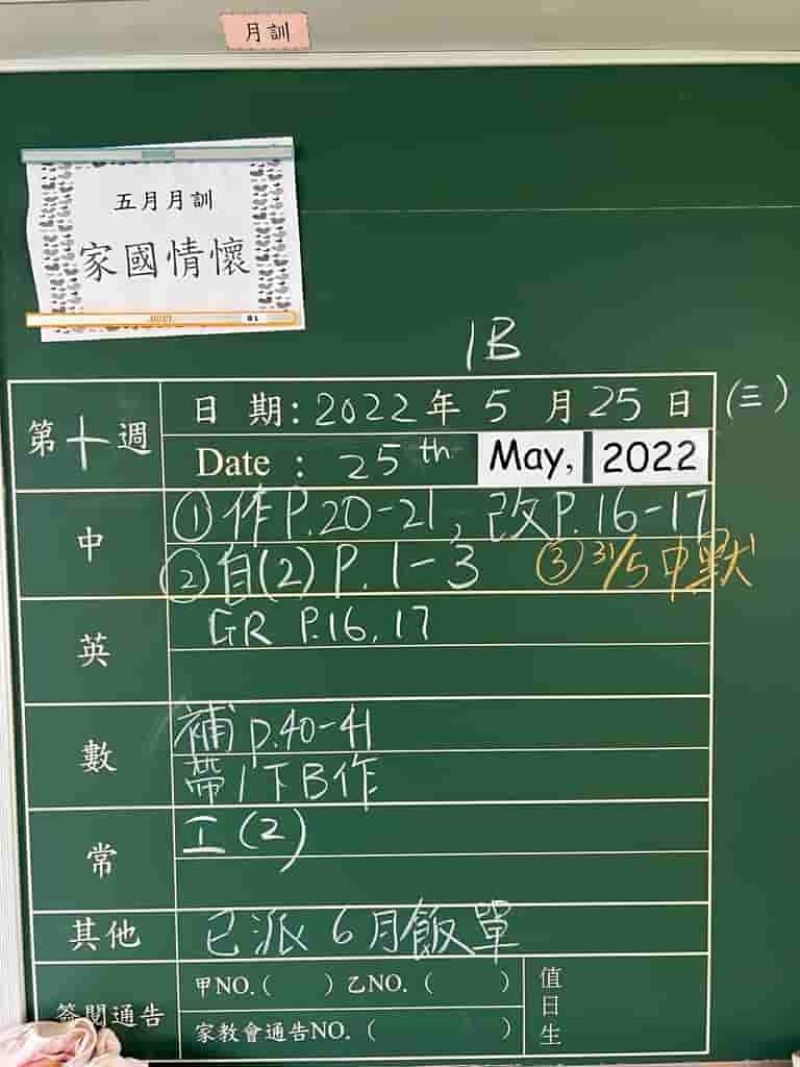 月訓
五月月訓
家國情懷
1B
第十週
日 期: 2022 年 5 月 25 日 (三)
Date : 25th May, 2022
中
①作P.20-21, 改P.16-17
②自(2) P.1-3 ③31/5中默
英
GR P.16,17
數
補p.40-41
帶1下B作
常
工(2)
其他
已派6月飯單
簽閱通告
甲NO.( ) 乙NO.( )
家教會通告NO.( )
值日生